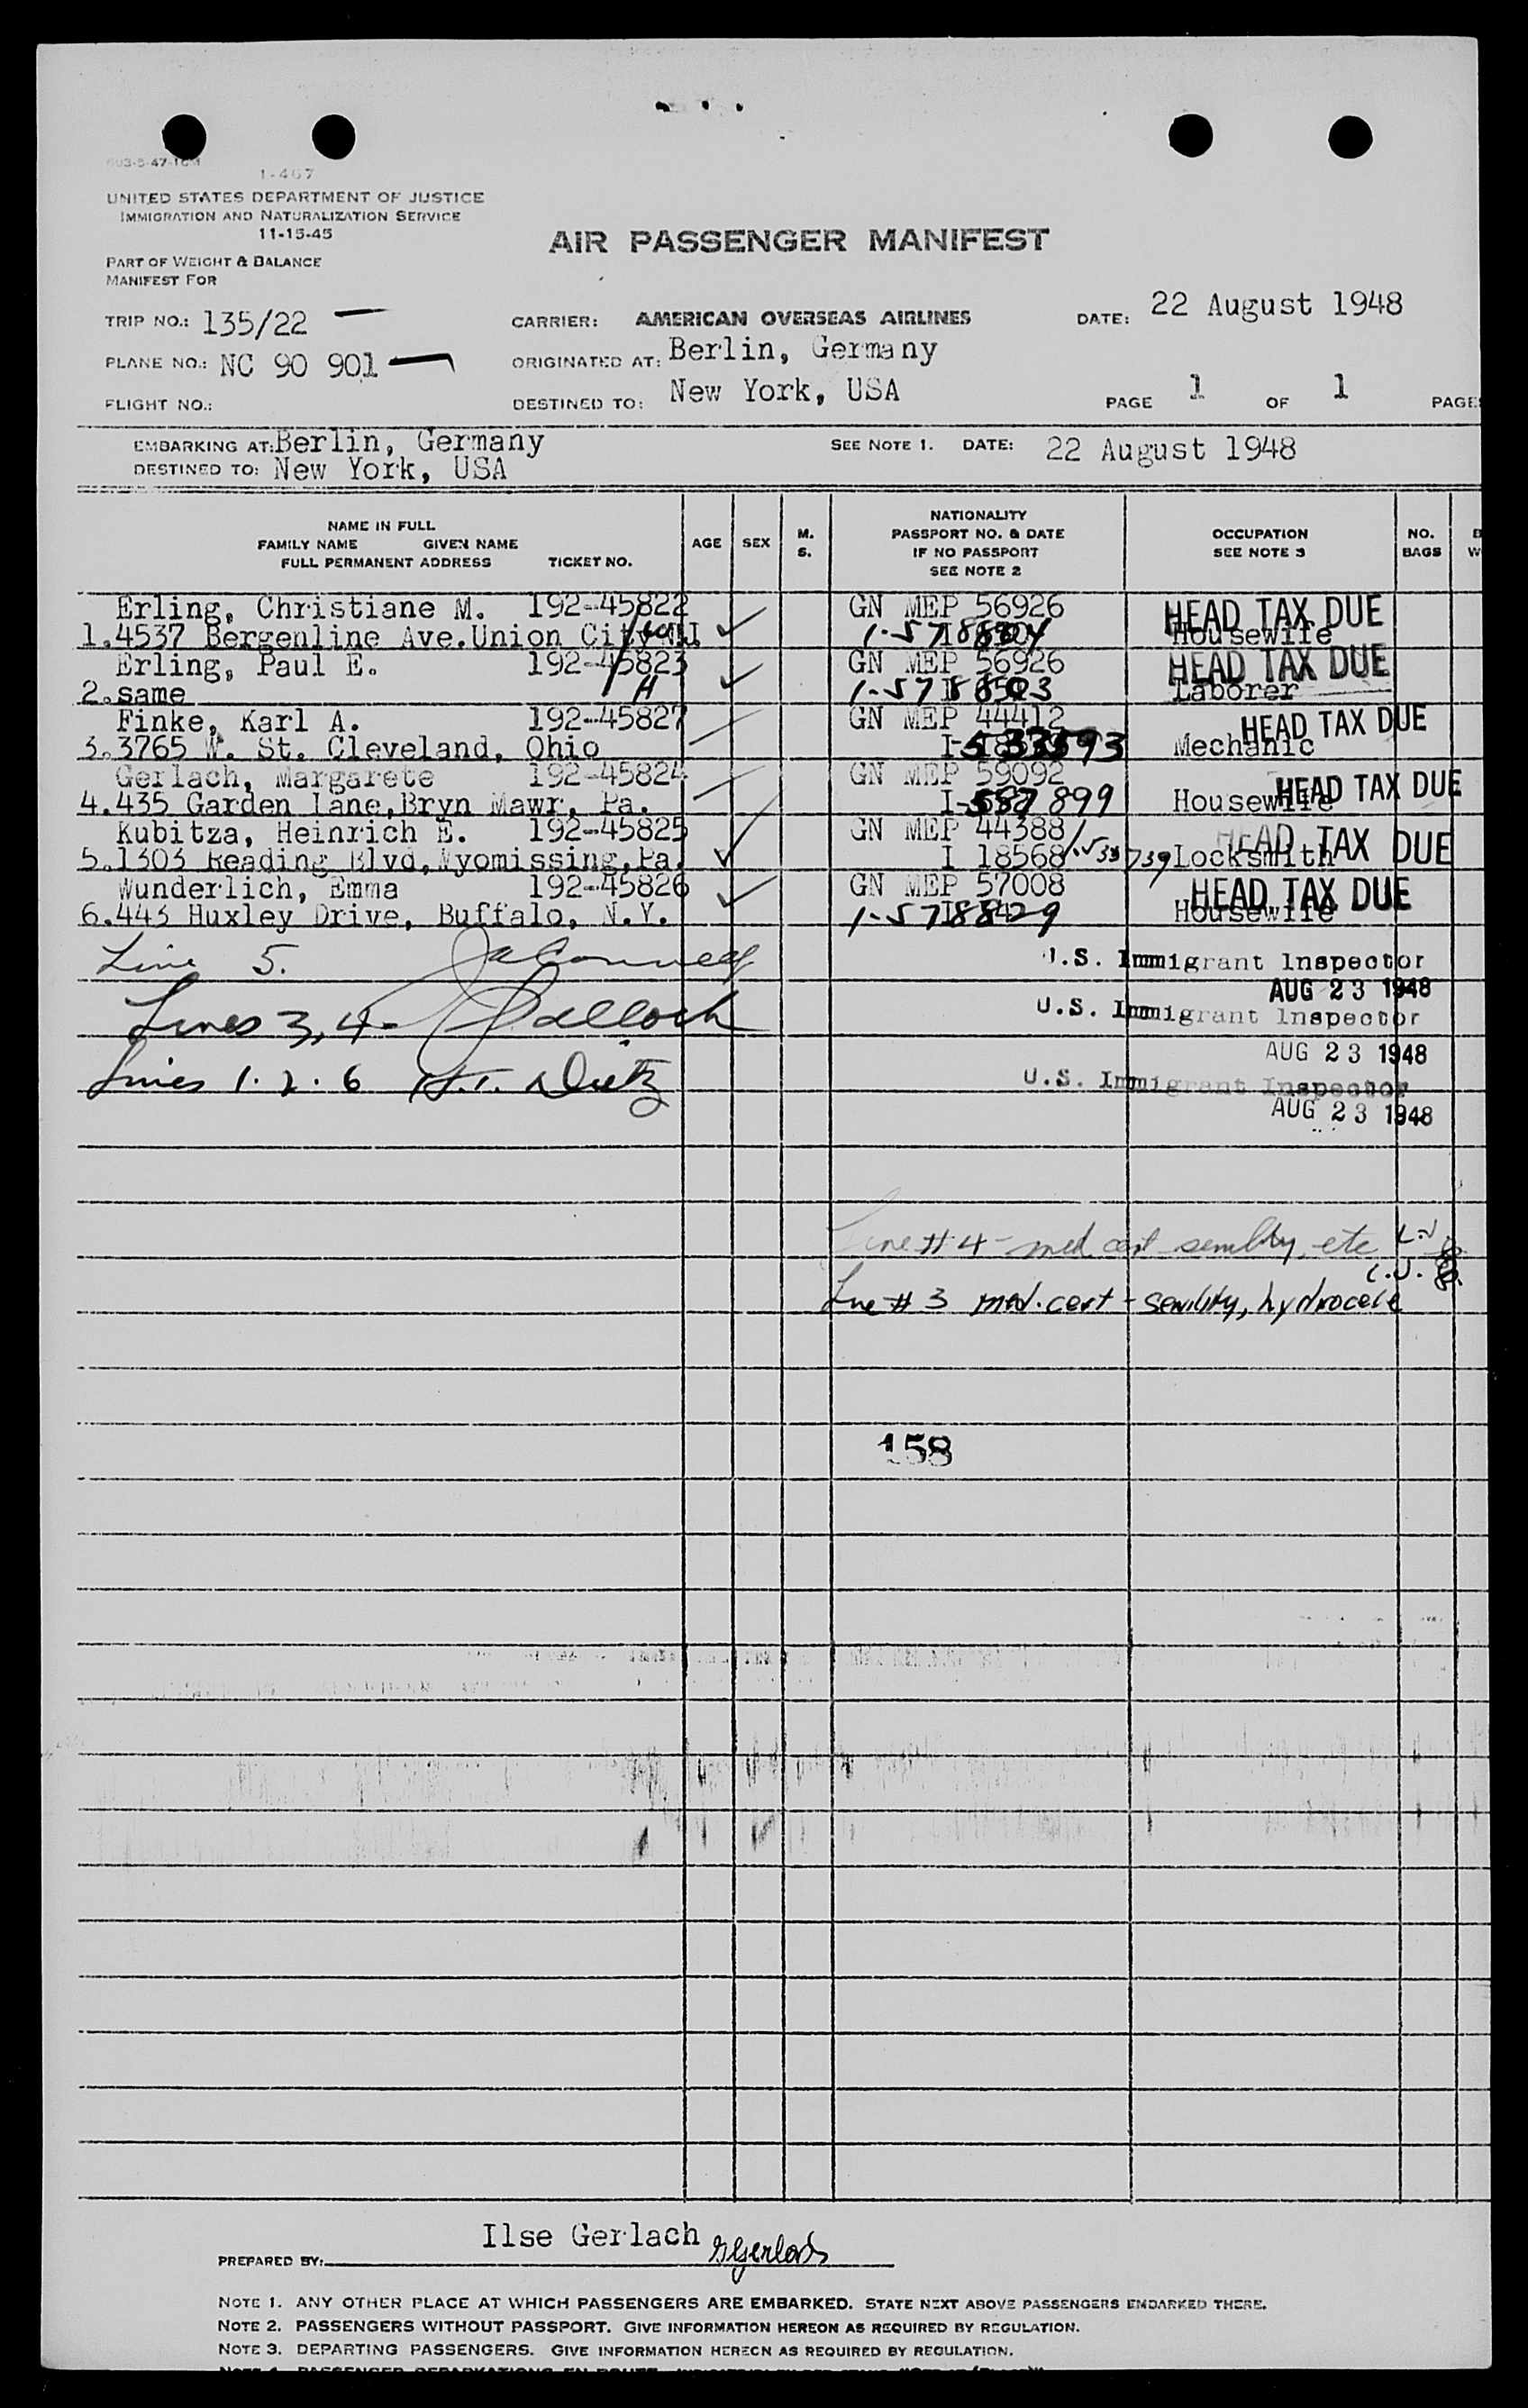 1-467
UNITED STATES DEPARTMENT OF JUSTICE
IMMIGRATION AND NATURALIZATION SERVICE
11-15-45
AIR PASSENGER MANIFEST
PART OF WEIGHT & BALANCE
MANIFEST FOR
TRIP NO.: 135/22 CARRIER: AMERICAN OVERSEAS AIRLINES DATE: 22 August 1948
PLANE NO.: NC 90 901 ORIGINATED AT: Berlin, Germany
FLIGHT NO.: DESTINED TO: New York, USA PAGE 1 OF 1 PAGE
EMBARKING AT: Berlin, Germany SEE NOTE 1. DATE: 22 August 1948
DESTINED TO: New York, USA
NAME IN FULL
FAMILY NAME GIVEN NAME
FULL PERMANENT ADDRESS TICKET NO. AGE SEX M. S. NATIONALITY PASSPORT NO. & DATE IF NO PASSPORT SEE NOTE 2 OCCUPATION SEE NOTE 3 NO. BAGS
Erling, Christiane M. 192-45822 GN MEP 56926 HEAD TAX DUE
1.4537 Bergenline Ave.Union City Housewife
Erling, Paul E. 192-45823 GN MEP 56926 HEAD TAX DUE
2.same Laborer
Finke, Karl A. 192-45827 GN MEP 44412 HEAD TAX DUE
3.3765 W. St. Cleveland, Ohio Mechanic
Gerlach, Margarete 192-45824 GN MEP 59092 HEAD TAX DUE
4.435 Garden Lane,Bryn Mawr, Pa. 899 Housewife
Kubitza, Heinrich E. 192-45825 GN MEP 44388 HEAD TAX DUE
5.1303 Reading Blvd,Wyomissing,Pa. I 18568 Locksmith
Wunderlich, Emma 192-45826 GN MEP 57008 HEAD TAX DUE
6.443 Huxley Drive, Buffalo, N.Y. Housewife
Line 5. U.S. Immigrant Inspector
AUG 23 1948
Lines 3,4- U.S. Immigrant Inspector
AUG 23 1948
Lines 1.2.6 H.T. Dietz U.S. Immigrant Inspector
AUG 23 1948
Line #4 - med cert senility, etc
Line #3 med. cert - senility, hydrocele
158
PREPARED BY: Ilse Gerlach
NOTE 1. ANY OTHER PLACE AT WHICH PASSENGERS ARE EMBARKED. STATE NEXT ABOVE PASSENGERS EMBARKED THERE.
NOTE 2. PASSENGERS WITHOUT PASSPORT. GIVE INFORMATION HEREON AS REQUIRED BY REGULATION.
NOTE 3. DEPARTING PASSENGERS. GIVE INFORMATION HEREON AS REQUIRED BY REGULATION.